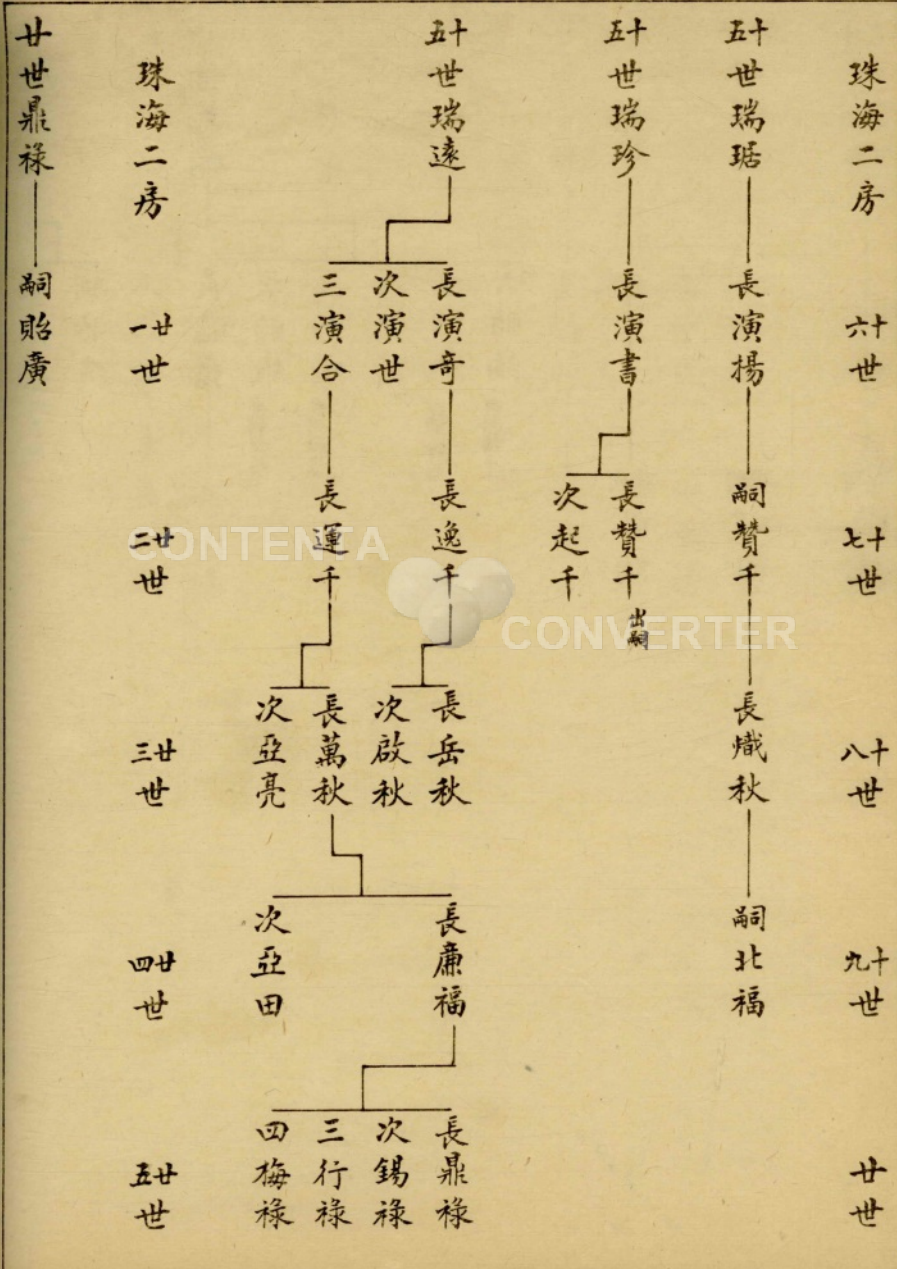 珠海二房
十六世
十七世
十八世
十九世
廿世
十五世瑞琚
長演揚
嗣贊千
長熾秋
嗣北福
十五世瑞珍
長演書
長贊千
出嗣
次起千
十五世瑞遠
長演奇
次演世
三演合
長逸千
長運千
長岳秋
次啟秋
長萬秋
次亞亮
長廉福
次亞田
長鼎祿
次錫祿
三行祿
四梅祿
珠海二房
廿一世
廿二世
廿三世
廿四世
廿五世
廿世鼎祿
嗣貽廣
CONTENTA
CONVERTER